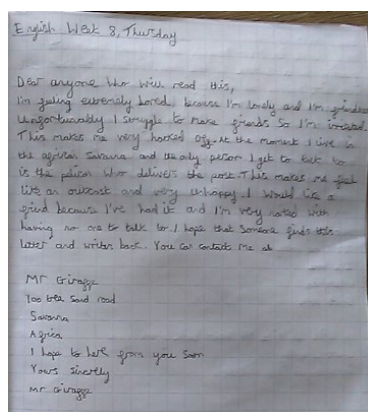 English Week 8, Thursday
Dear anyone who will read this,
I'm feeling extremely bored because I'm lonely and I'm
Unfortunately I struggle to make friends so I'm
This makes me very hacked off. At the moment I live in
the african Savanna and the only person I get to talk to
is the pelican who delivers the post. This makes me feel
like an outcast and very unhappy. I would like a
friend because I've had it and I'm very with
having no one to talk to. I hope that someone finds this
letter and writes back. You can contact me at
Mr Giraffe
Sand road
Savanna
Africa
I hope to here from you soon
Yours
Mr Giraffe